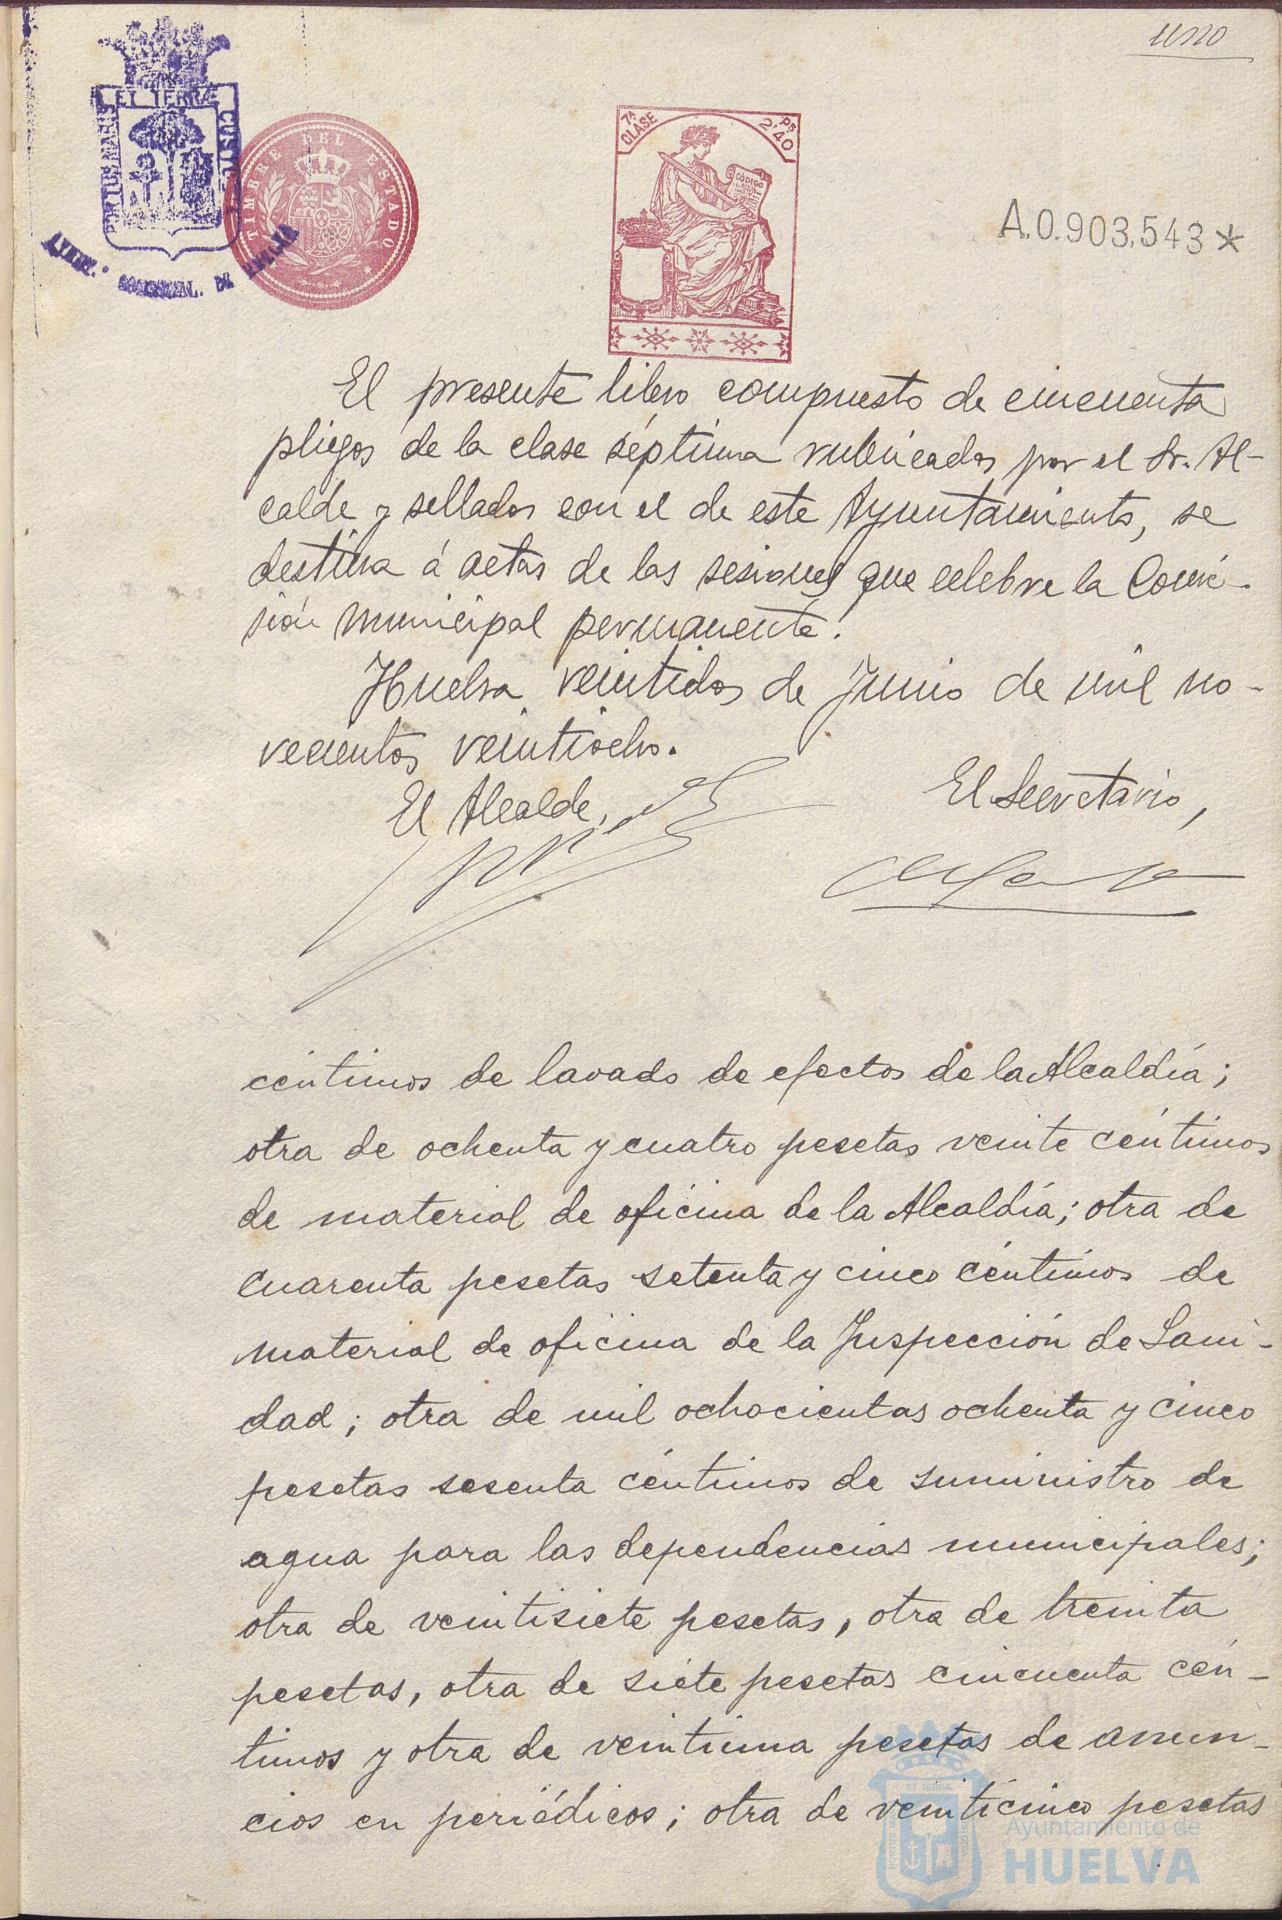 uno
PORTUS MARIS ET TERRÆ CUSTODIA
TIMBRE DEL ESTADO
7ª CLASE
Ps 2'40
CODIGO
A.0.903,543*
El presente libro compuesto de cincuenta
pliegos de la clase séptima rubricados por el Sr. Al-
calde y sellados con el de este Ayuntamiento, se
destina á actas de las sesiones que celebre la Comi-
sión municipal permanente.
Huelva veintidos de Junio de mil no-
vecientos veintiocho.
El Alcalde,
El Secretario,
céntimos de lavado de efectos de la Alcaldía;
otra de ochenta y cuatro pesetas veinte céntimos
de material de oficina de la Alcaldía; otra de
cuarenta pesetas setenta y cinco céntimos de
material de oficina de la Inspección de Sani-
dad; otra de mil ochocientas ochenta y cinco
pesetas sesenta céntimos de suministro de
agua para las dependencias municipales;
otra de veintisiete pesetas, otra de treinta
pesetas, otra de siete pesetas cincuenta cén-
timos y otra de veintiuna pesetas de anun-
cios en periódicos; otra de veinticinco pesetas
Ayuntamiento de
HUELVA